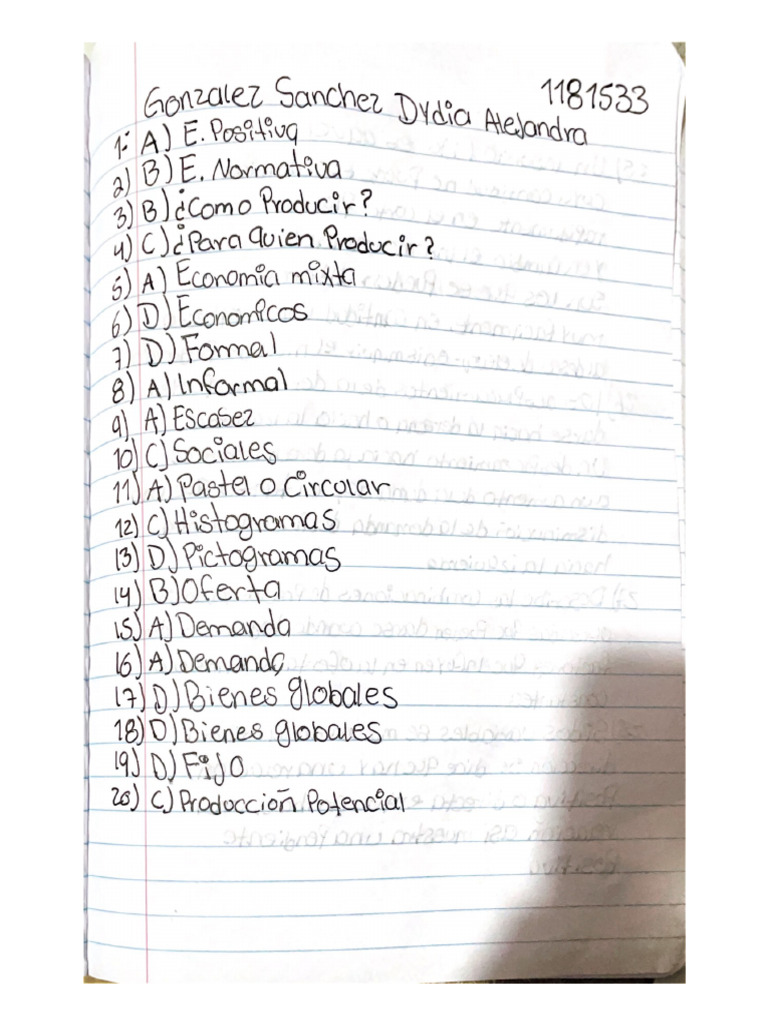 Gonzalez Sanchez Dydia Alejandra 1181533
1: A) E. Positiva
2) B) E. Normativa
3) B) ¿Como Producir?
4) C) ¿Para quien Producir?
5) A) Economia mixta
6) D) Economicos
7) D) Formal
8) A) Informal
9) A) Escasez
10) C) Sociales
11) A) Pastel o Circular
12) C) Histogramas
13) D) Pictogramas
14) B) Oferta
15) A) Demanda
16) A) Demanda
17) D) Bienes globales
18) D) Bienes globales
19) D) Fijo
20) C) Producción Potencial